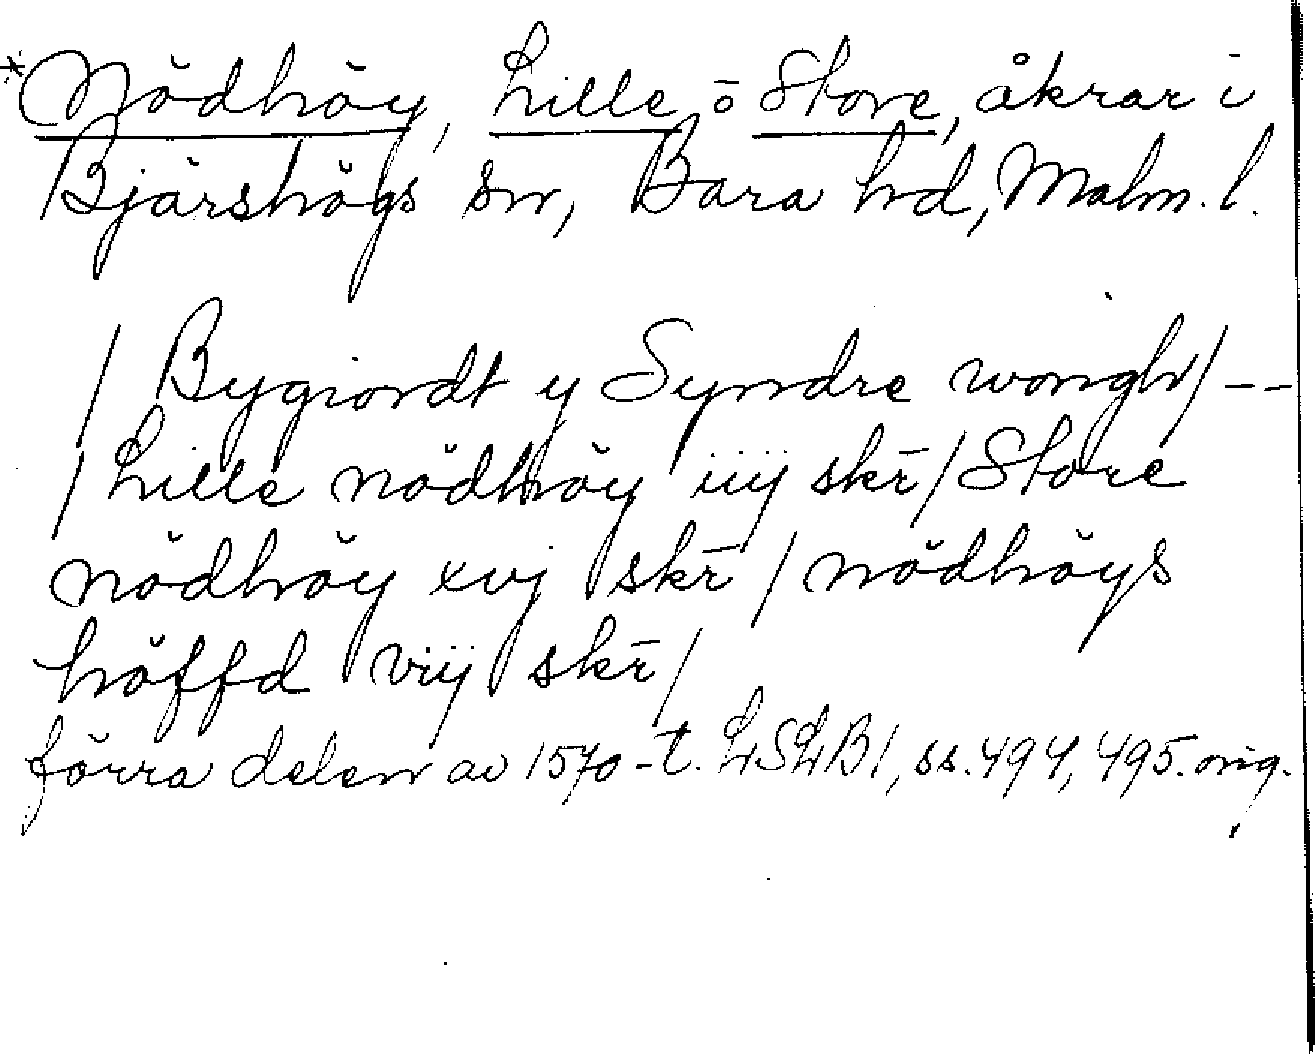 *Nödhöy, Lille o Store, åkrar i
Bjärshögs sn, Bara hd, Malm. l.
/ Bygiordt y Syndre wongh / --
/ Lille nödhöy iiij skr̄ / Store
nödhöy xvj skr̄ / nödhöys
höffd viij skr̄ /
förra delen av 1570-t. LSLB1, ss. 494, 495. orig.